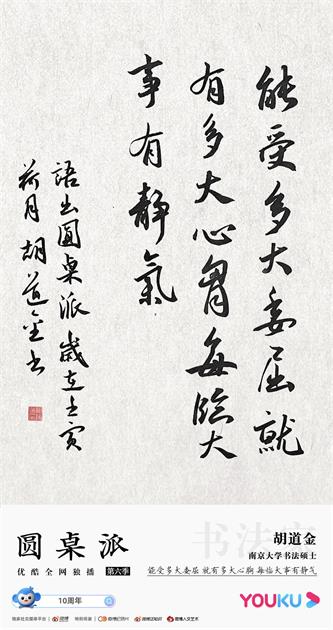 能受多大委屈就
有多大心胸每临大
事有静氣
語出圆桌派歲在壬寅
荷月胡道金书
书法家
圆桌派
胡道金
南京大学书法硕士
优酷全网独播 第六季
能受多大委屈 就有多大心胸 每临大事有静气
10周年
YOUKU